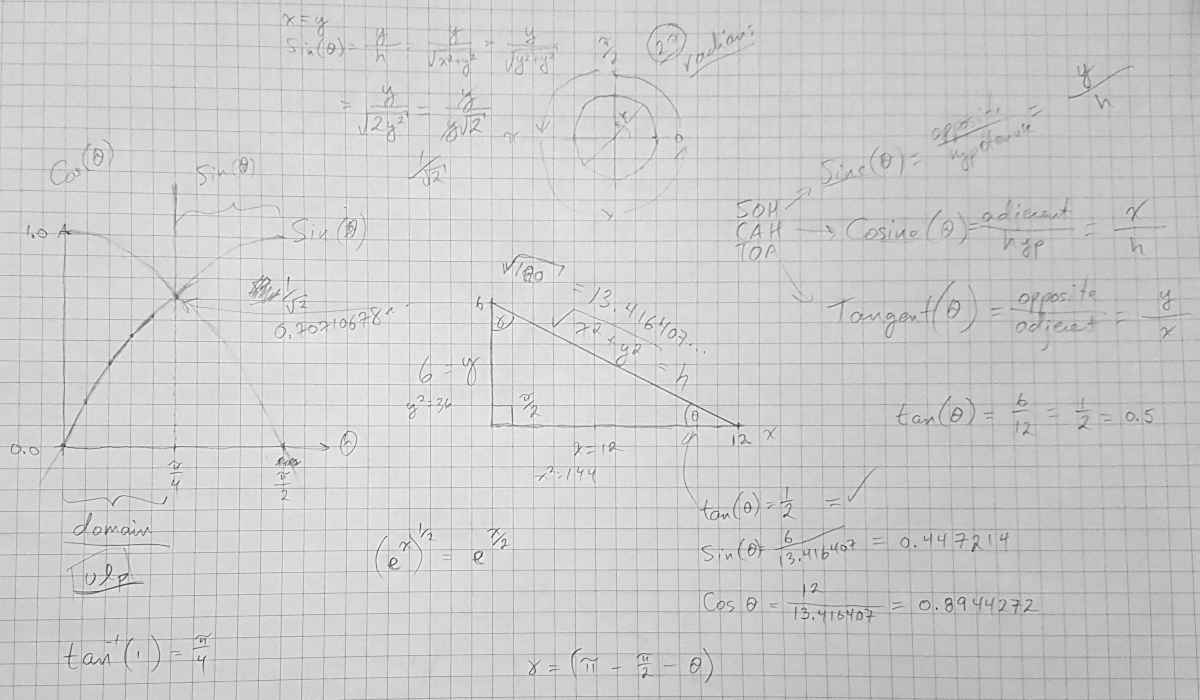 x = y
Sin(θ) = y/h = y/√(x²+y²) = y/√(y²+y²)
= y/√(2y²) = y/(y√2)
1/√2
π/2
2π
radian:
π
r
0
y/h
Sine(θ) = opposite/hypotenuse =
SOH
CAH → Cosine(θ) = adjecent/hyp = x/h
TOA
Tangent(θ) = opposite/adjecent = y/x
Cos(θ)
Sin(θ)
1.0
Sin(θ)
1/√2
0.70710678
0.0
π/4
π/2
domain
ulp
tan⁻¹(1) = π/4
√180 = 13.416407...
√(x²+y²) = h
6
γ
6 = y
y² = 36
π/2
θ
12 x
x = 12
x² = 144
tan(θ) = 6/12 = 1/2 = 0.5
tan(θ) = 1/2 = ✓
Sin(θ) = 6/13.416407 = 0.447214
Cos θ = 12/13.416407 = 0.8944272
(eˣ)^1/2 = e^x/2
γ = (π - π/2 - θ)